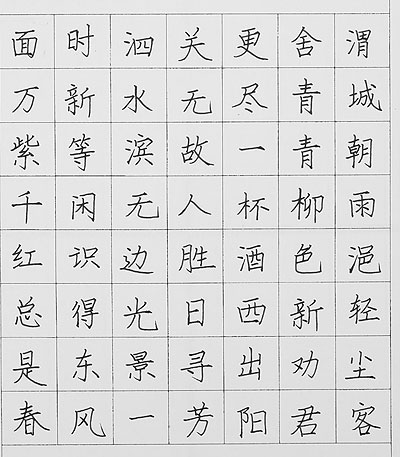 渭城朝雨浥轻尘客
舍青青柳色新劝君
更尽一杯酒西出阳
关无故人胜日寻芳
泗水滨无边光景一
时新等闲识得东风
面万紫千红总是春